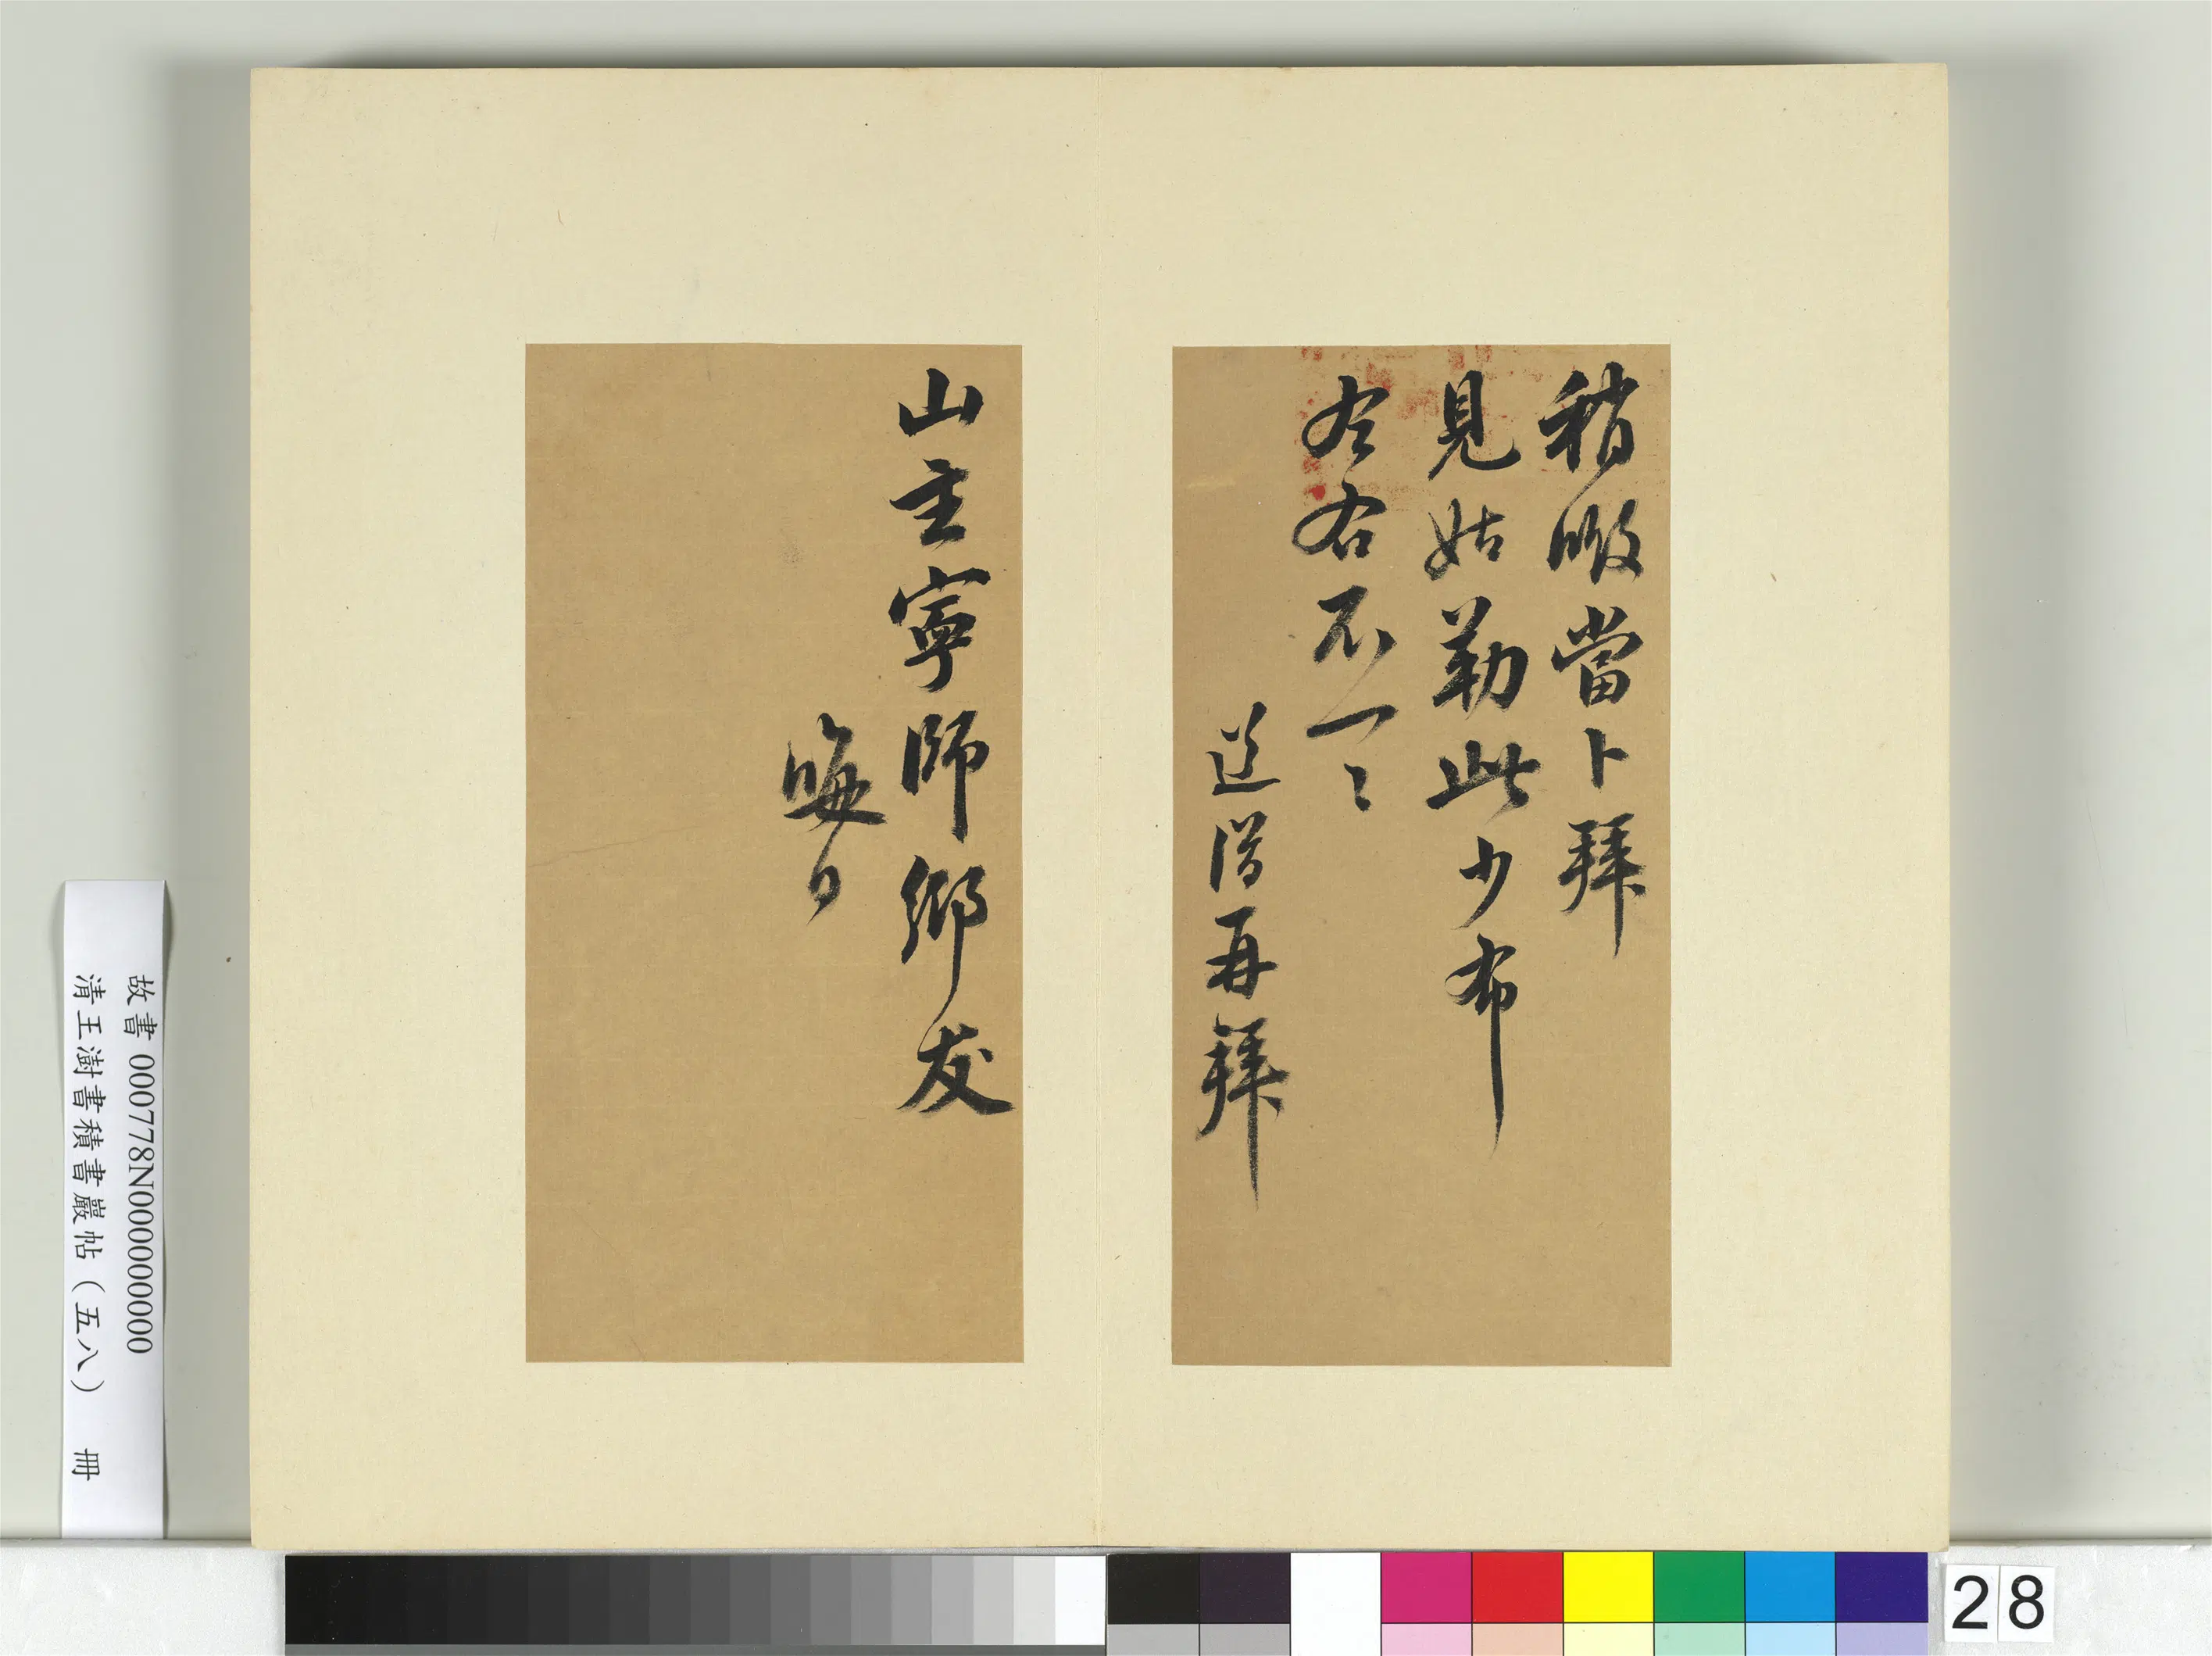 稍暇當卜拜
見姑勒此少布
左右不一〻
道潛再拜
山主寧師鄉友
晦日
故書 000778N000000000
清王澍書積書巖帖（五八） 冊
28